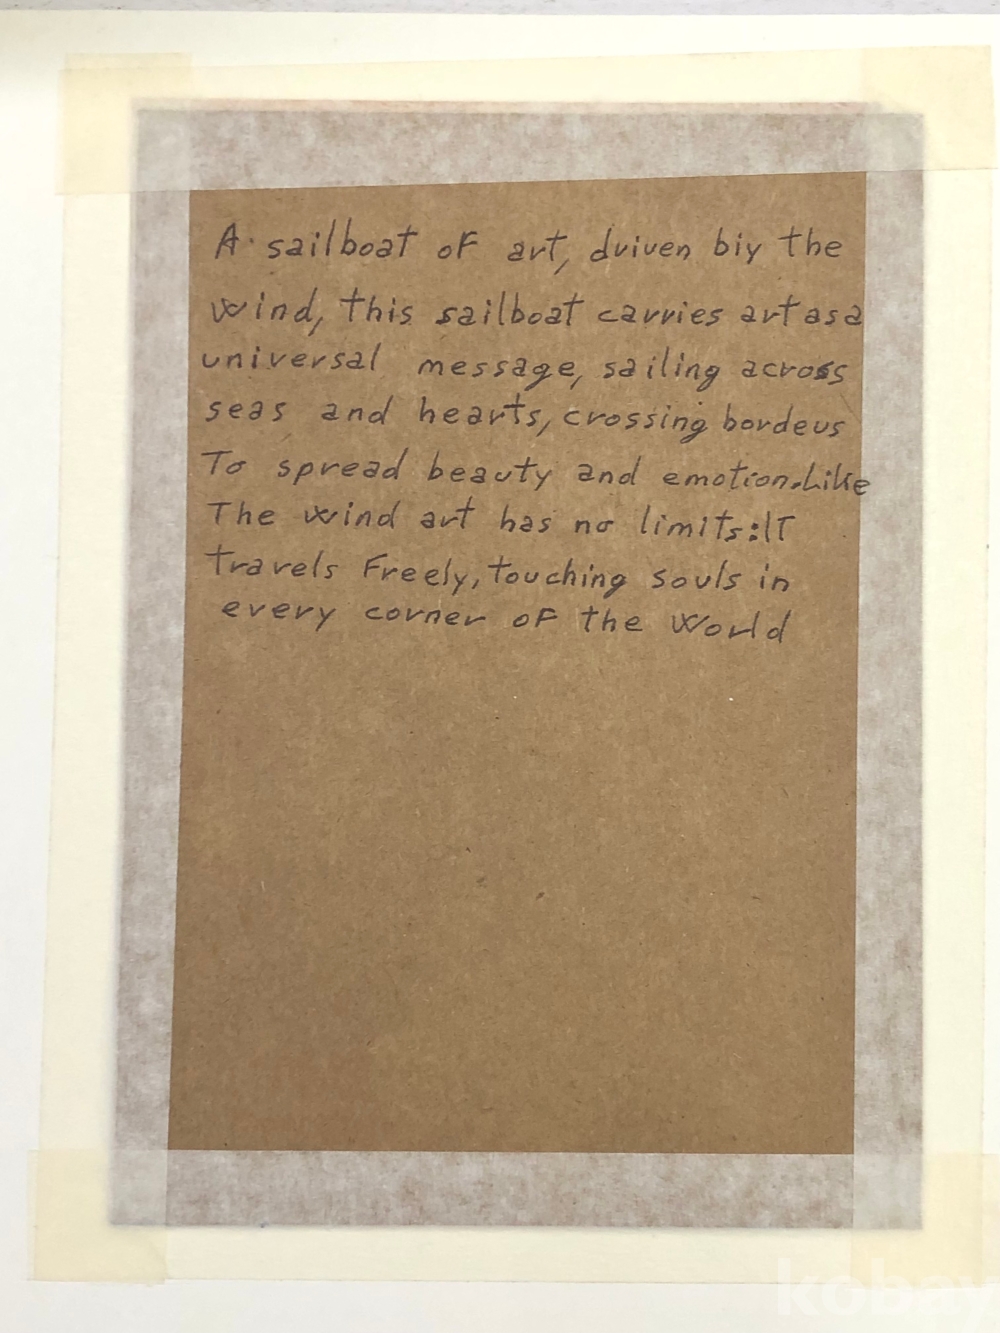 A. sailboat of art, driven biy the
wind, this sailboat carries art as a
universal message, sailing across
seas and hearts, crossing borders
To spread beauty and emotion. Like
The wind art has no limits: IT
Travels Freely, touching souls in
every corner of the World
kobay